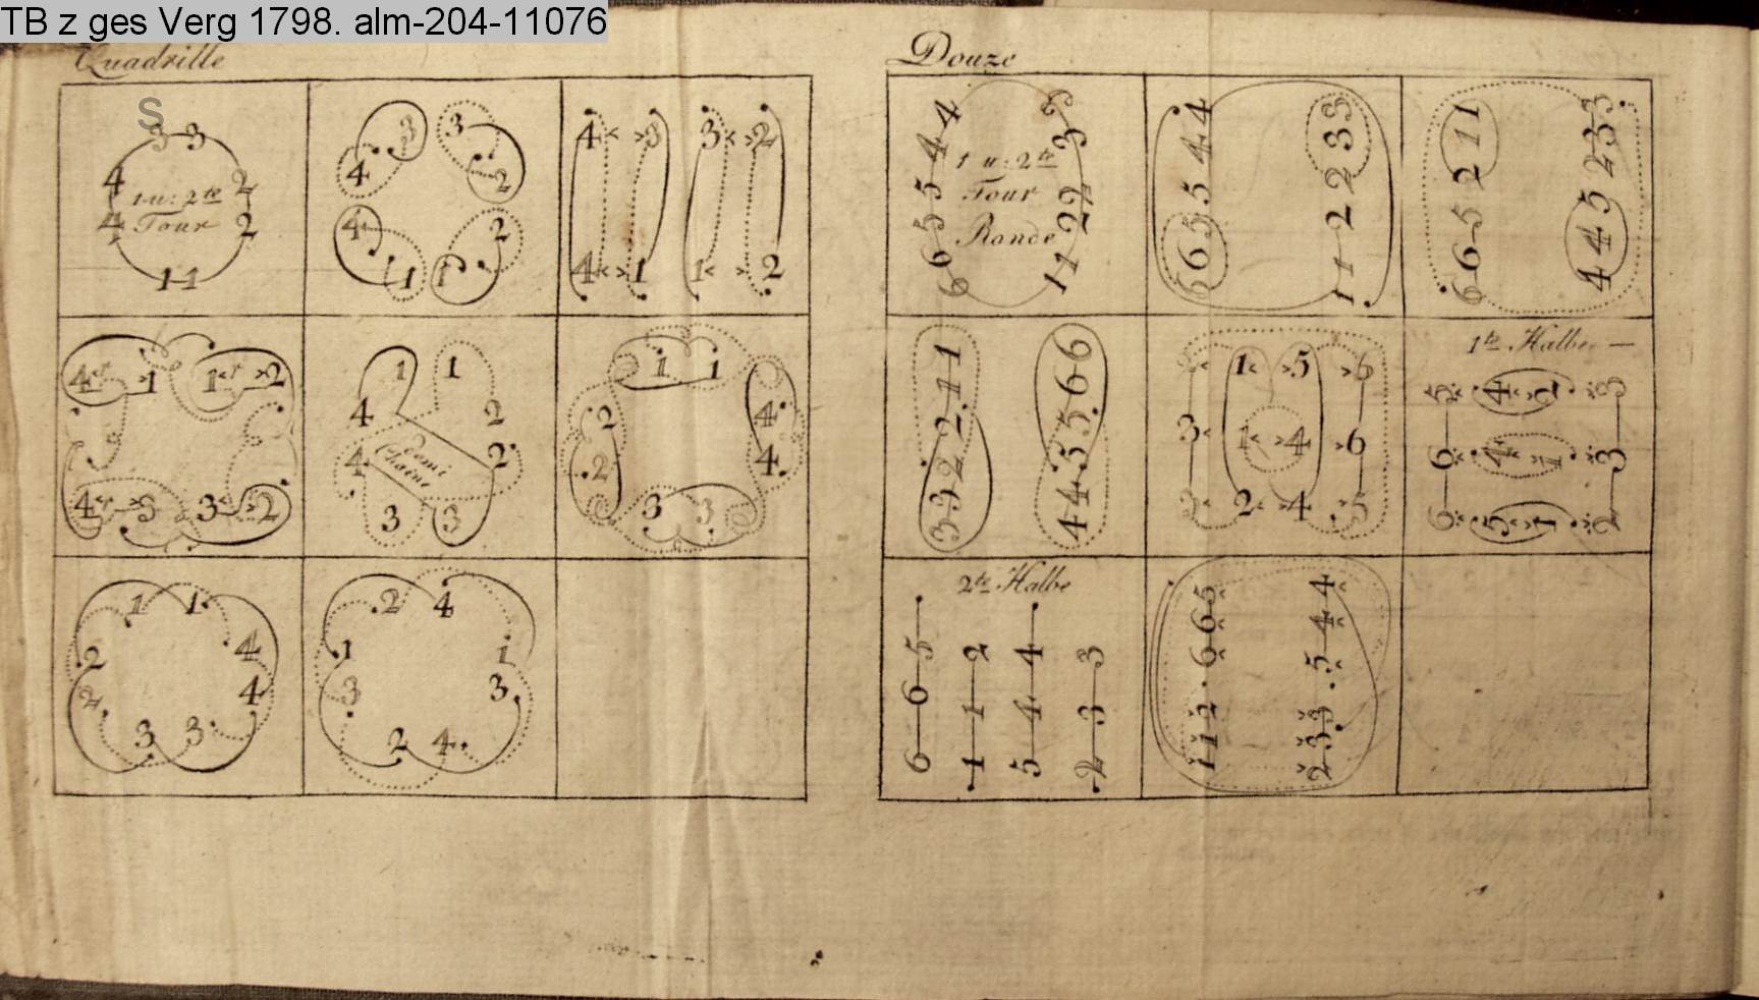 TB z ges Verg 1798. alm-204-11076
Quadrille
S
3 3
4 2
1 u: 2te
4 Tour 2
1 1
3 3
4 2
4 2
1 1
4 3 3 2
4 1 1 2
4 1 1 2
4 3 3 2
1 1
4 2
Demi
Chaine
4 2
3 3
1 1
2 4
2 4
3 3
1 1
2 4
2 4
3 3
2 4
1 1
3 3
2 4
Douze
6 6 5 5 4 4
1 u: 2te
Tour
Ronde
1 1 2 2 3 3
6 6 5 5 4 4
1 1 2 2 3 3
6 6 5 2 1 1
4 4 5 2 3 3
3 3 2 2 1 1
4 4 5 5 6 6
3 1 5 6
3 1 4 6
3 2 4 5
1te Halbe
5 4 2 3
6 4 1 3
6 5 1 2
2te Halbe
6 6 5
1 1 2
5 4 4
2 3 3
1 1 2 . 6 6 5
2 3 3 . 5 4 4